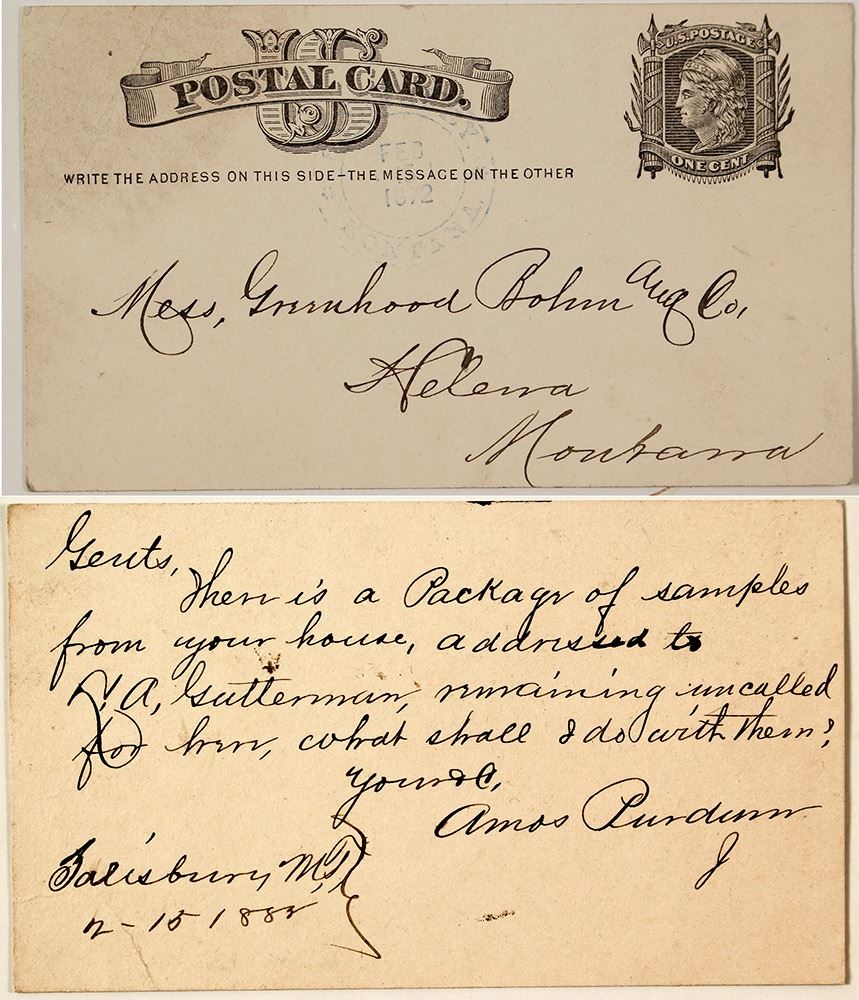 US
POSTAL CARD.
U.S. POSTAGE
ONE CENT
WRITE THE ADDRESS ON THIS SIDE-THE MESSAGE ON THE OTHER
FEB
MONTANA
Mess, Greenhood Bohm and Co,
Helena
Montana
Gents,
There is a Package of samples
from your house, addressed to
A, Gutterman, remaining uncalled
for here, what shall I do with them?
Yours &c,
Amos Purdum
Salisbury, M.T.
2-15 1882